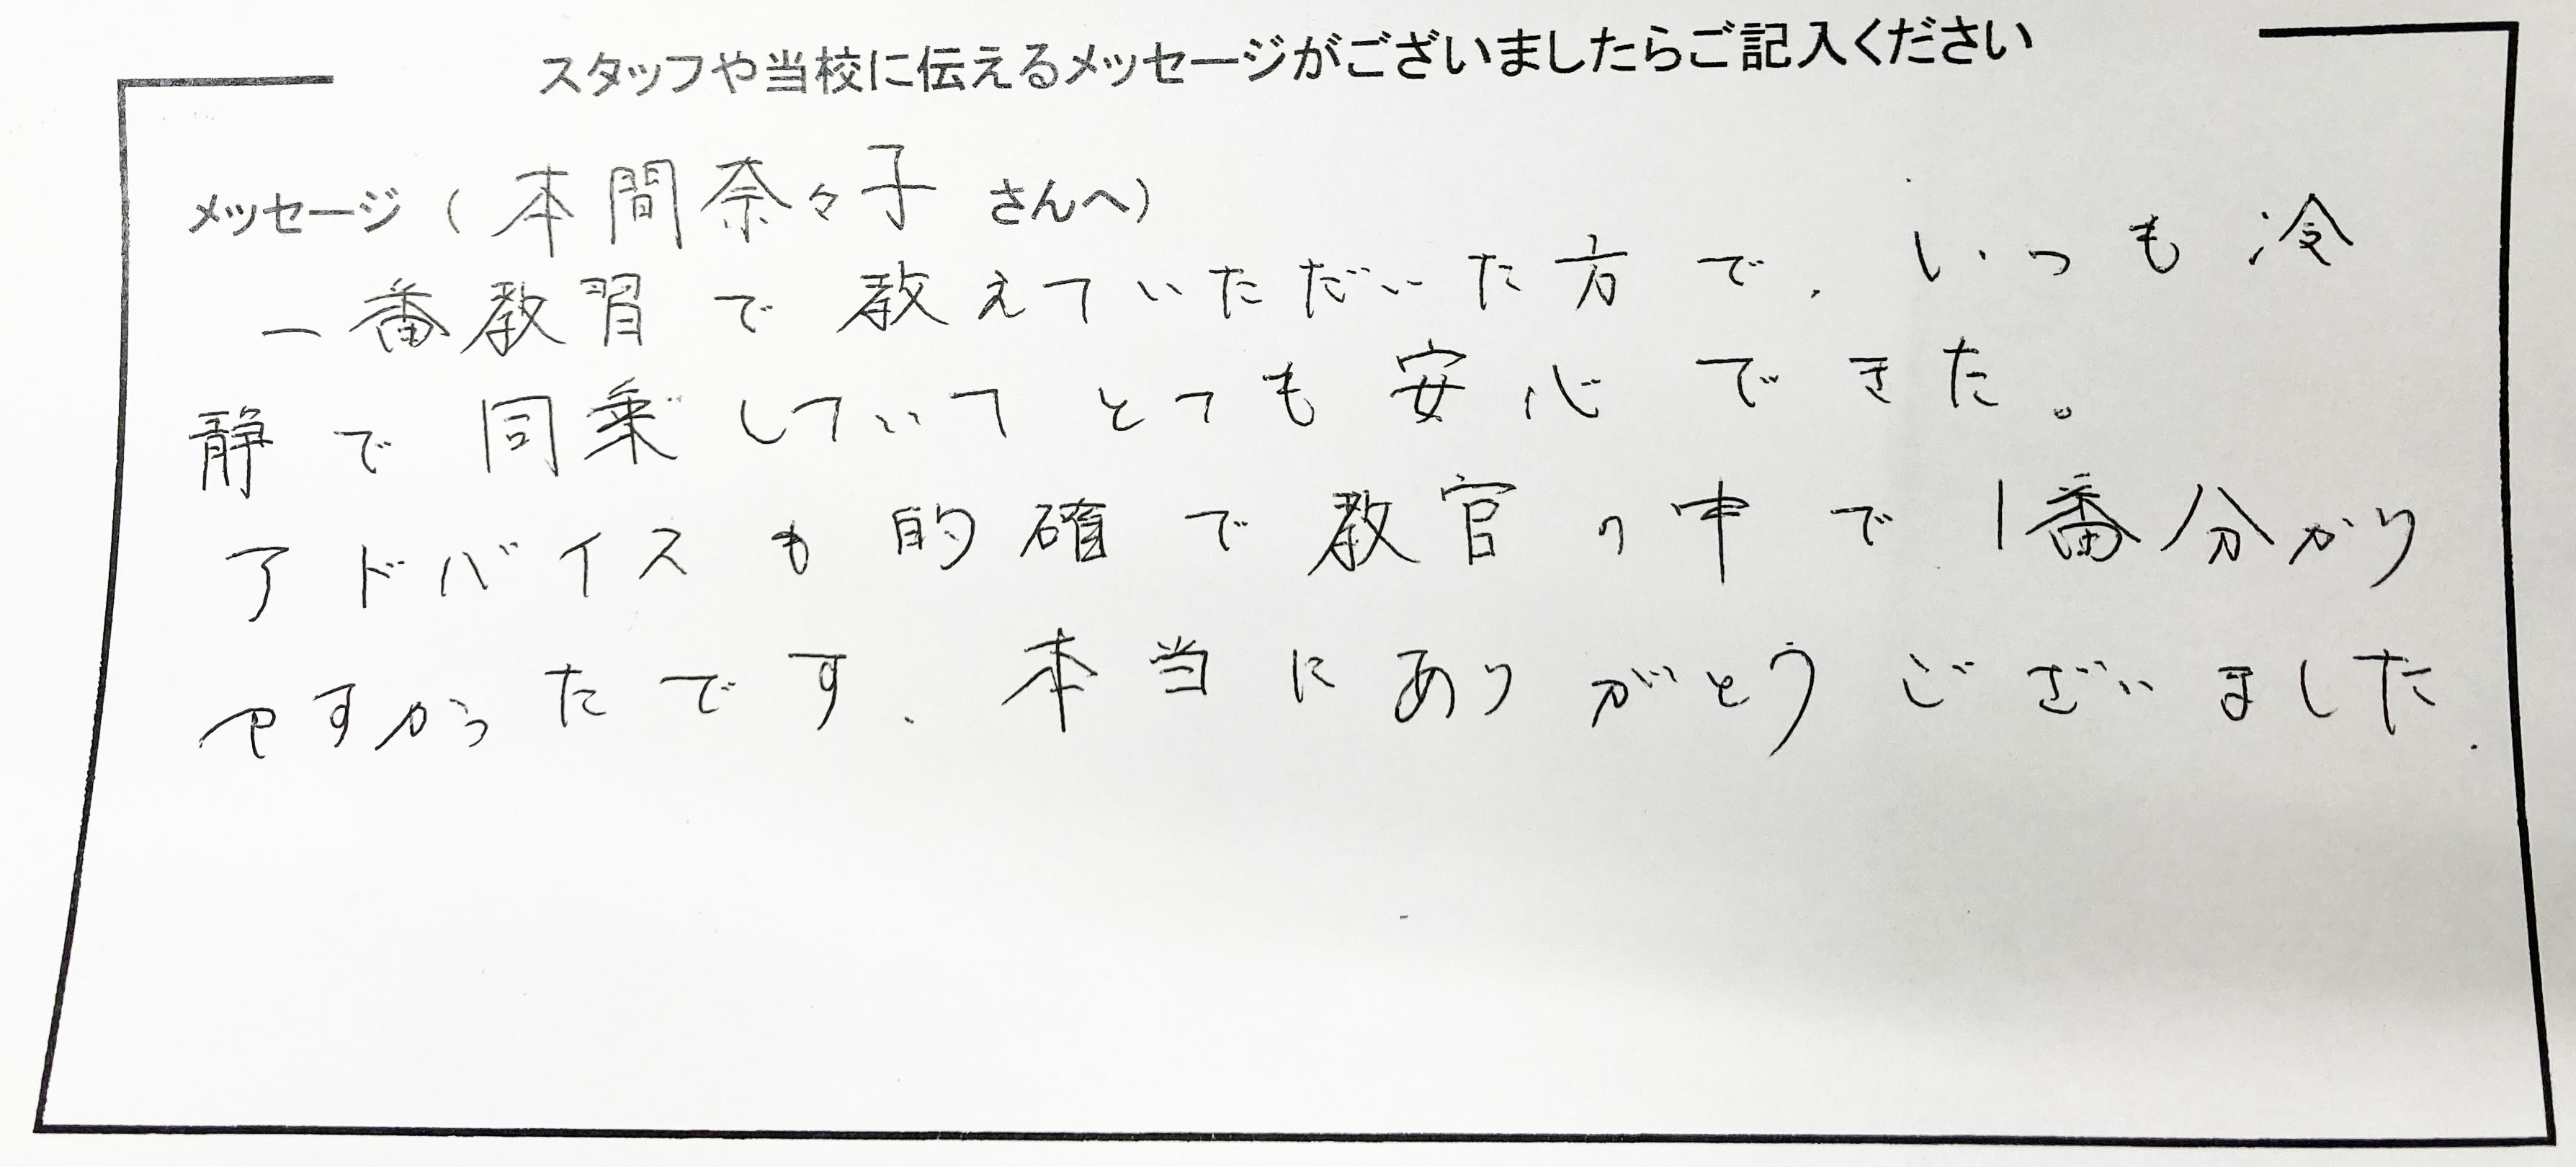 スタッフや当校に伝えるメッセージがございましたらご記入ください
メッセージ（本間奈々子 さんへ）
一番教習で教えていただいた方で、いつも冷
静で同乗していてとても安心できた。
アドバイスも的確で教官の中で1番分かり
やすかったです。本当にありがとうございました。